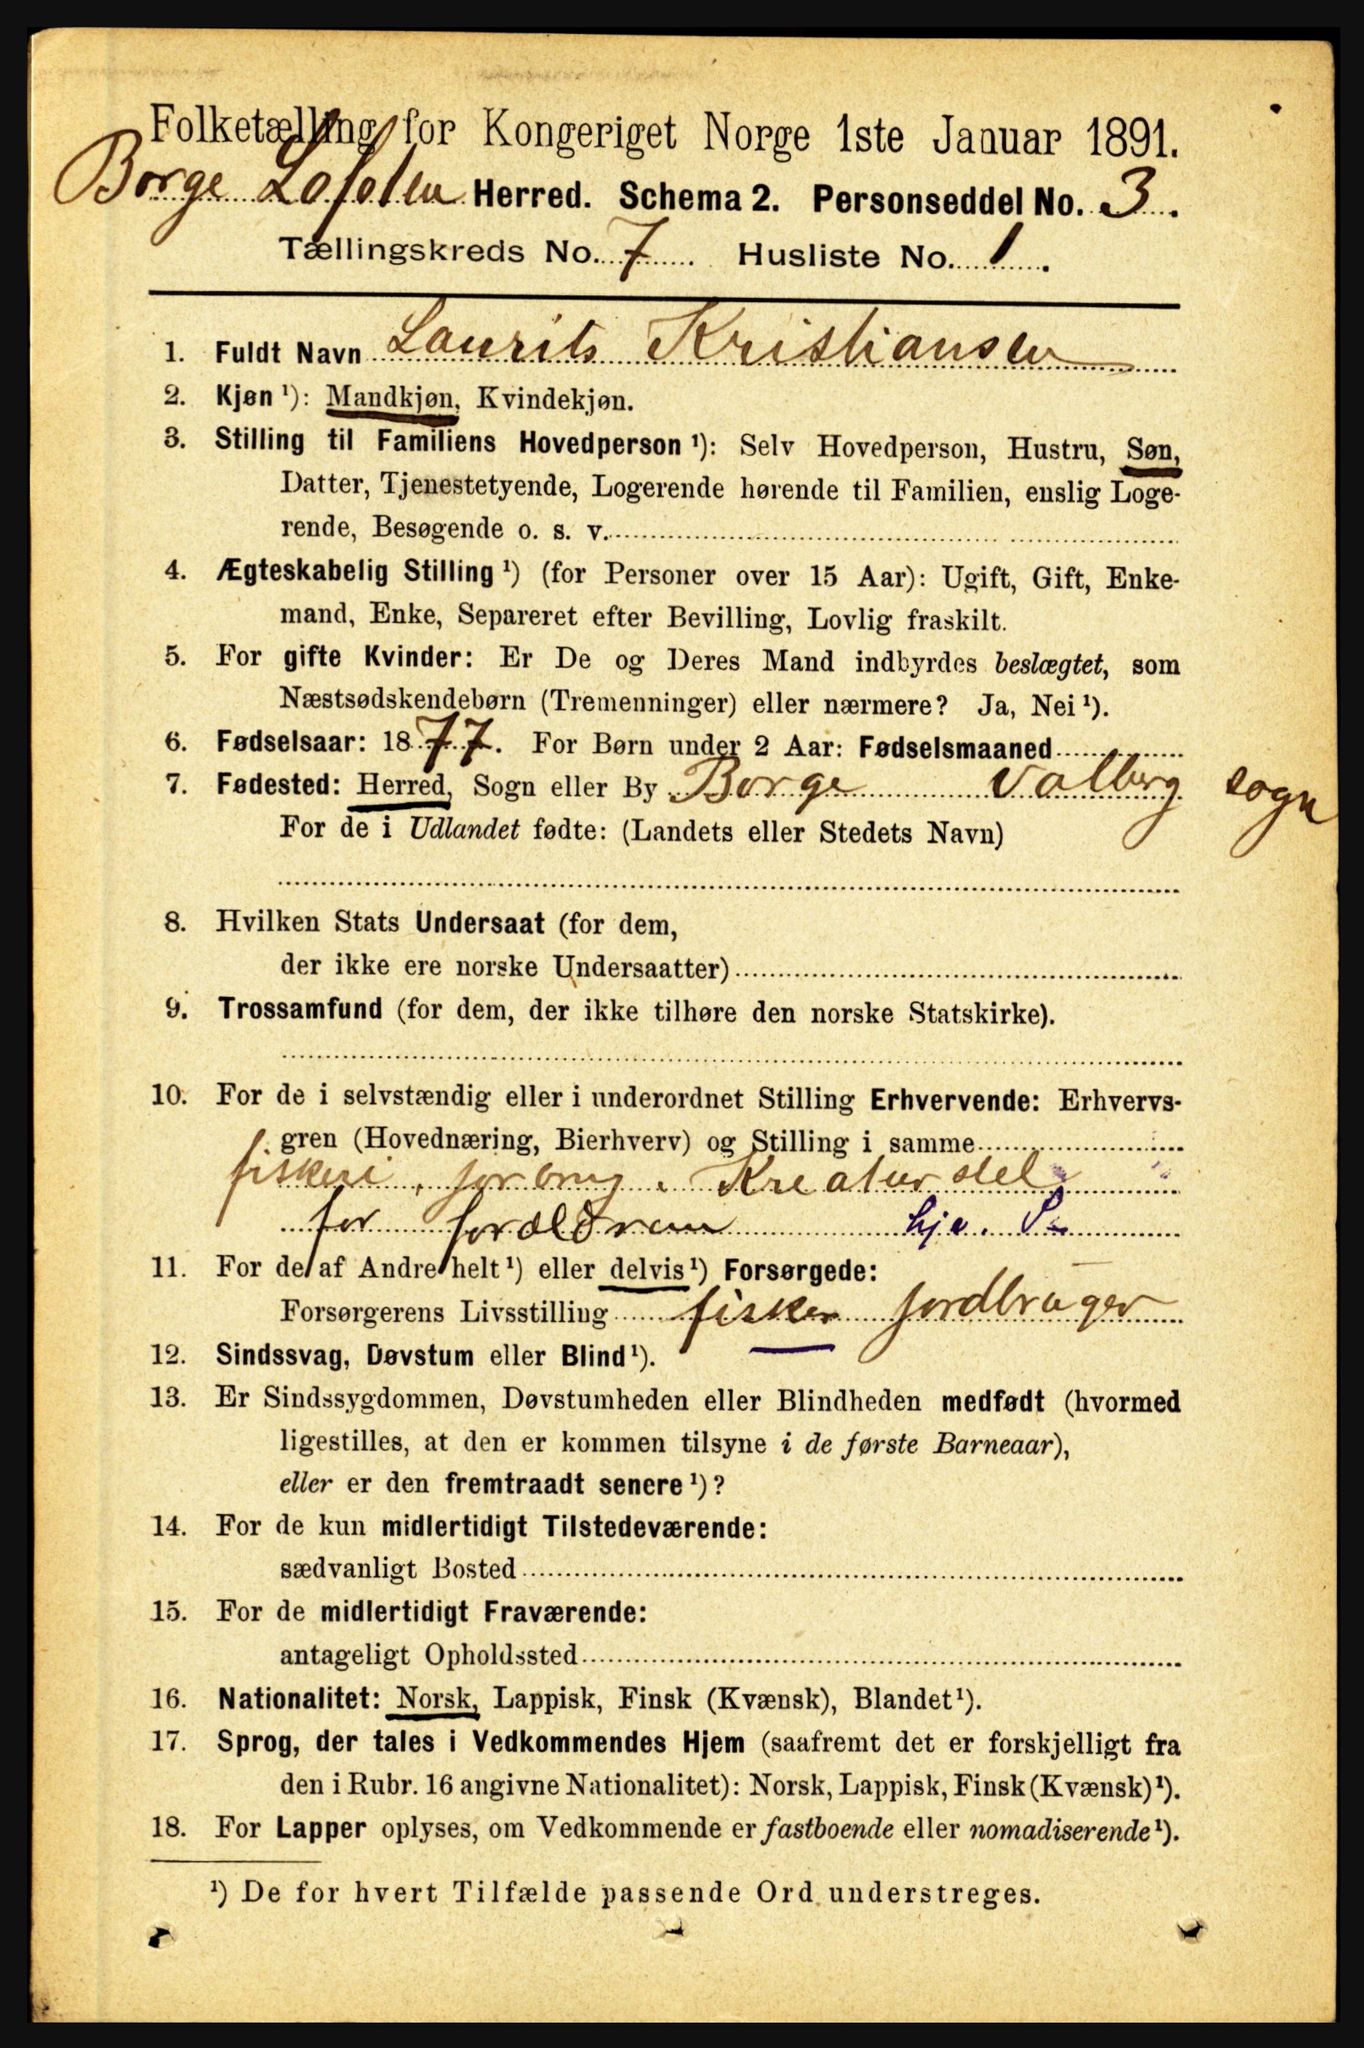 Folketælling for Kongeriget Norge 1ste Januar 1891.
Borge Lofoten Herred. Schema 2. Personseddel No. 3.
Tællingskreds No. 7 Husliste No. 1.
1. Fuldt Navn Laurits Kristiansen
2. Kjøn ¹): Mandkjøn, Kvindekjøn.
3. Stilling til Familiens Hovedperson ¹): Selv Hovedperson, Hustru, Søn,
Datter, Tjenestetyende, Logerende hørende til Familien, enslig Loge-
rende, Besøgende o. s. v.
4. Ægteskabelig Stilling ¹) (for Personer over 15 Aar): Ugift, Gift, Enke-
mand, Enke, Separeret efter Bevilling, Lovlig fraskilt.
5. For gifte Kvinder: Er De og Deres Mand indbyrdes beslægtet, som
Næstsødskendebørn (Tremenninger) eller nærmere? Ja, Nei ¹).
6. Fødselsaar: 1877. For Børn under 2 Aar: Fødselsmaaned
7. Fødested: Herred, Sogn eller By Borge Valberg sogn
For de i Udlandet fødte: (Landets eller Stedets Navn)
8. Hvilken Stats Undersaat (for dem,
der ikke ere norske Undersaatter)
9. Trossamfund (for dem, der ikke tilhøre den norske Statskirke).
10. For de i selvstændig eller i underordnet Stilling Erhvervende: Erhvervs-
gren (Hovednæring, Bierhverv) og Stilling i samme
fiskeri, jorbrug. Kreaturstel
for forældrene hje.
11. For de af Andre helt ¹) eller delvis ¹) Forsørgede:
Forsørgerens Livsstilling fisker jordbruger
12. Sindssvag, Døvstum eller Blind ¹).
13. Er Sindssygdommen, Døvstumheden eller Blindheden medfødt (hvormed
ligestilles, at den er kommen tilsyne i de første Barneaar),
eller er den fremtraadt senere ¹)?
14. For de kun midlertidigt Tilstedeværende:
sædvanligt Bosted
15. For de midlertidigt Fraværende:
antageligt Opholdssted
16. Nationalitet: Norsk, Lappisk, Finsk (Kvænsk), Blandet ¹).
17. Sprog, der tales i Vedkommendes Hjem (saafremt det er forskjelligt fra
den i Rubr. 16 angivne Nationalitet): Norsk, Lappisk, Finsk (Kvænsk) ¹).
18. For Lapper oplyses, om Vedkommende er fastboende eller nomadiserende ¹).
¹) De for hvert Tilfælde passende Ord understreges.